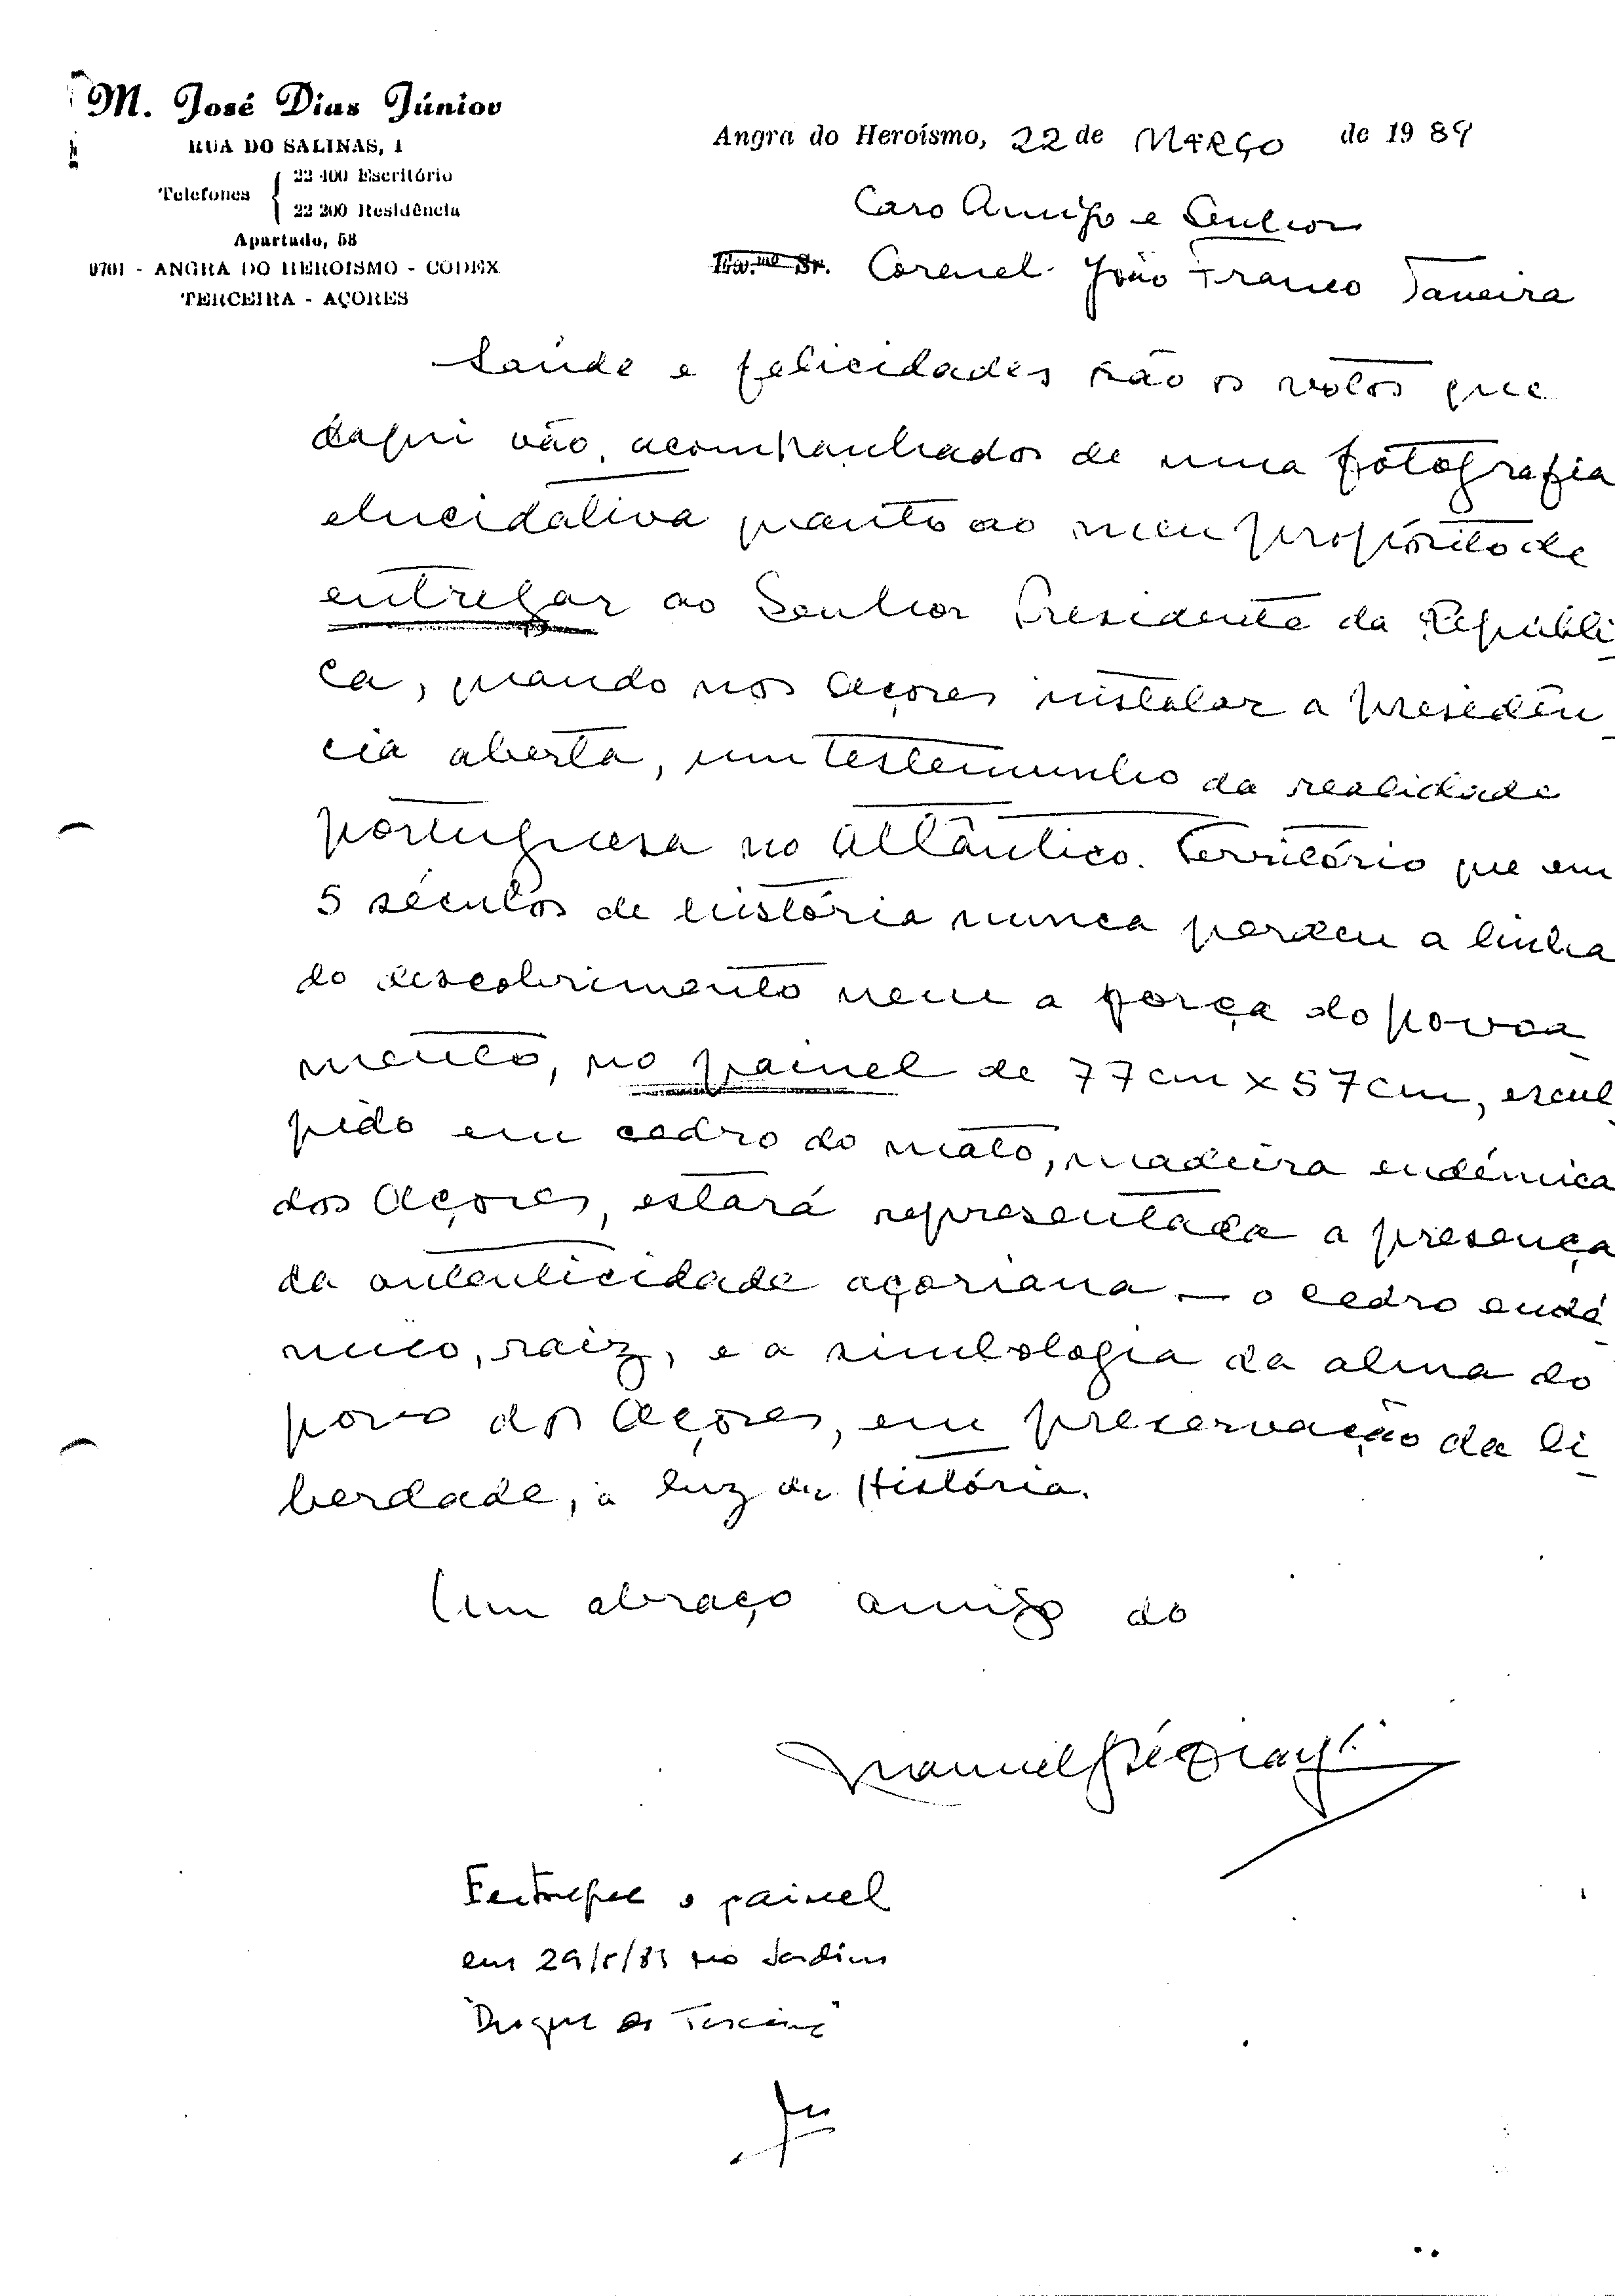 M. José Dias Júnior
RUA DO SALINAS, 1
Telefones { 22 400 Escritório
22 200 Residência
Apartado, 58
9701 - ANGRA DO HEROISMO - CODEX
TERCEIRA - AÇORES
Angra do Heroísmo, 22 de MARÇO de 1989
Caro Amigo e Senhor
Ex.mo Sr. Coronel João Franco
Saúde e felicidades são os votos que
daqui vão, acompanhados de uma fotografia
elucidativa quanto ao meu propósito de
entregar ao Senhor Presidente da Repúbli-
ca, quando nos Açores instalar a presidên-
cia aberta, um testemunho da realidade
portuguesa no Atlântico. Território que em
5 séculos de história nunca perdeu a linha
do descobrimento nem a força do povoa-
mento, no painel de 77cm x 57cm, escul-
pido em cedro do mato, madeira endémica
dos Açores, estará representada a presença
da autenticidade açoriana — o cedro endé-
mico, raiz, e a simbologia da alma do
povo dos Açores, em preservação da li-
berdade, à luz da História.
Um abraço amigo do
Manuel José Dias Jr.
Entreguei o painel
em no Jardim
"Duque da Terceira"